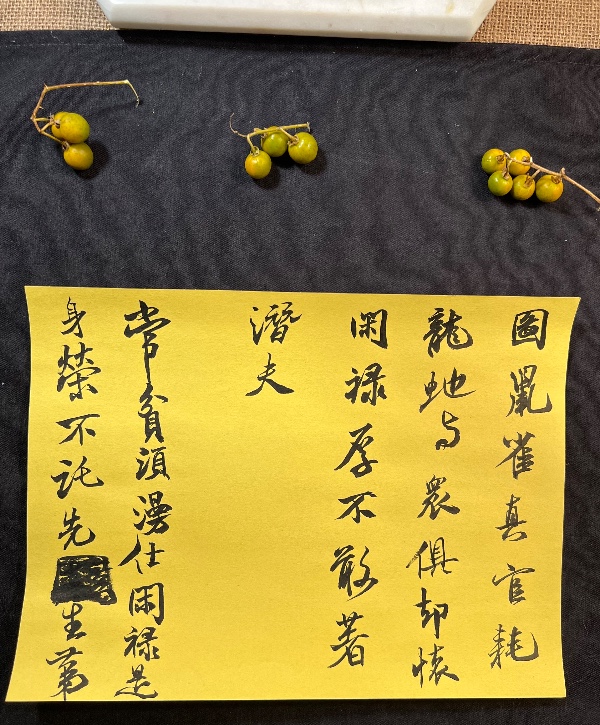 圖鼠雀真官耗
龍虵与衆俱却懷
閑禄厚不敢著
潛夫
常貧須漫仕閑禄是
身榮不託先生第